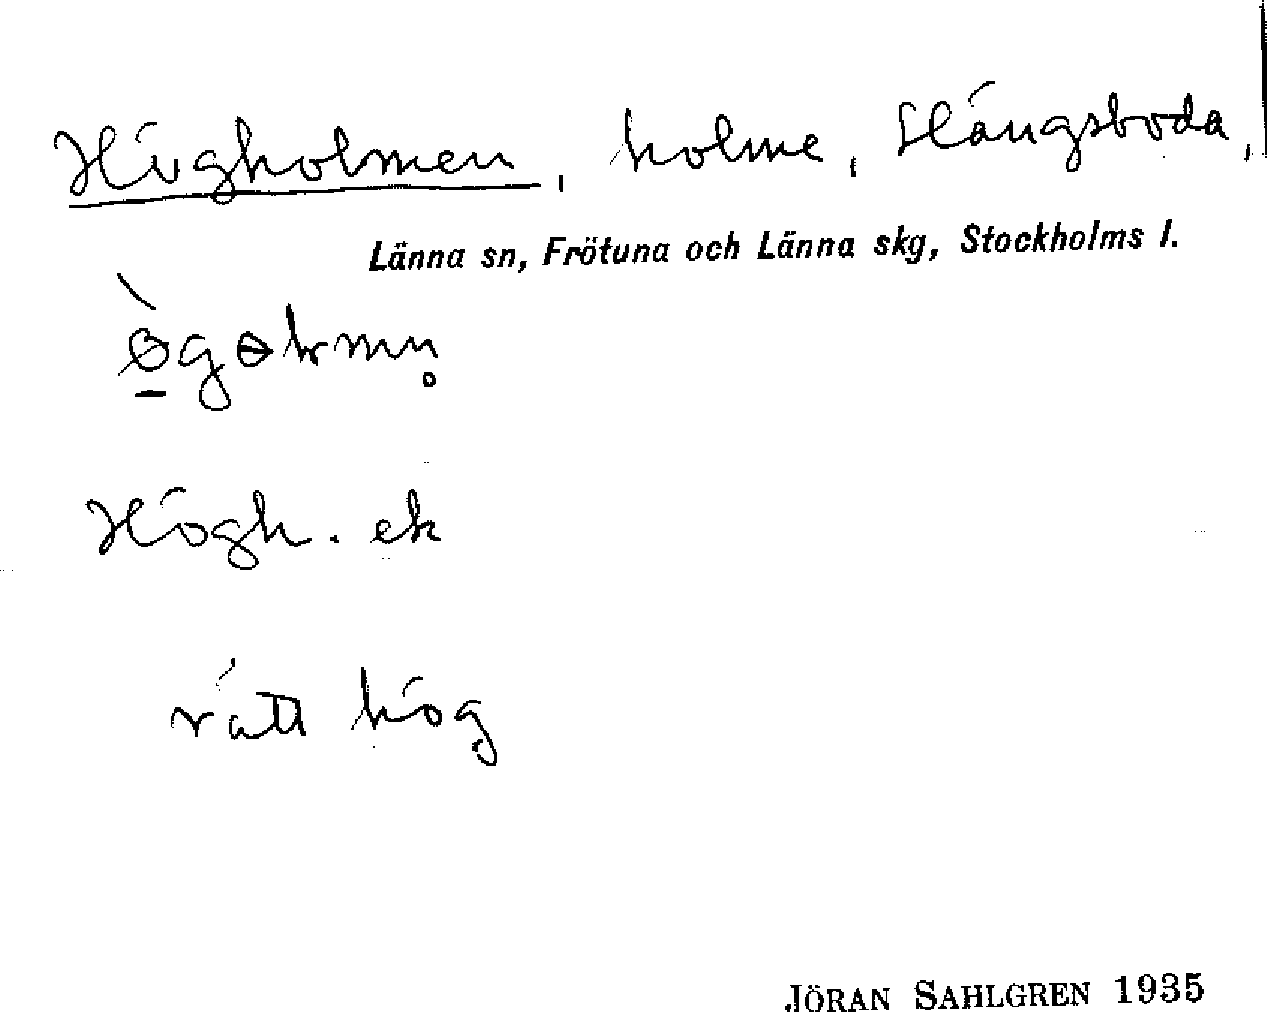 Högholmen, holme, Slängsboda,
Länna sn, Frötuna och Länna skg, Stockholms l.
Högh. ek
rätt hög
JÖRAN SAHLGREN 1935